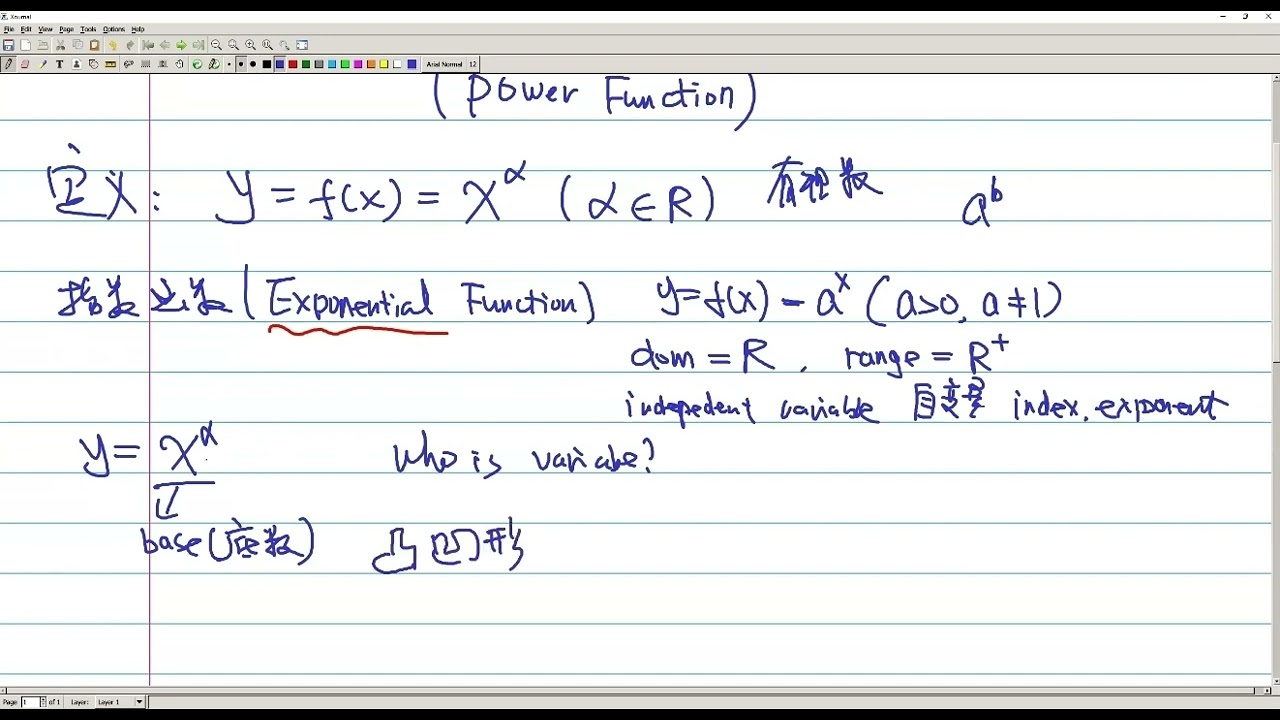 Xournal
File Edit View Page Tools Options Help
Arial Normal 12
(Power Function)
定义: y = f(x) = x^α (α ∈ R) 有理数 a^b
指数函数(Exponential Function) y=f(x)=a^x (a>0, a≠1)
dom = R, range = R^+
indepedent variable 自变量 index, exponent
y = x^α who is variabe?
base(底数) 凸凹形
Page 1 of 1 Layer: Layer 1